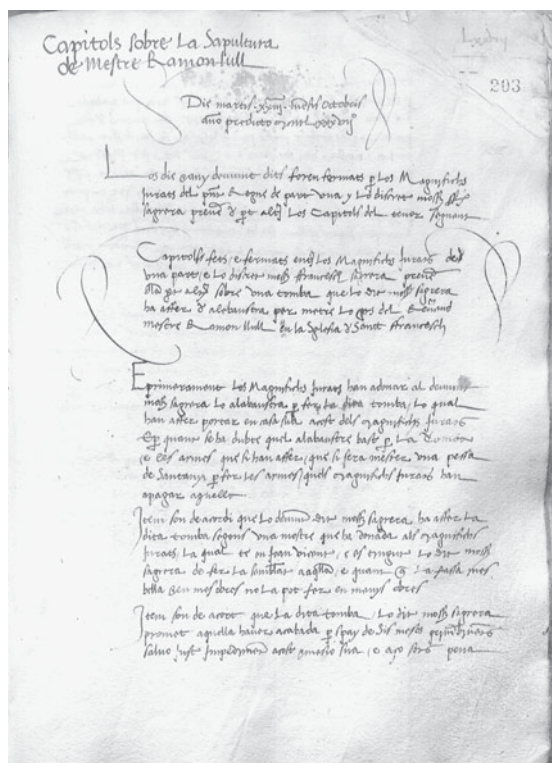 Capitols sobre La Sapultura
de Mestre Ramon lull
203
Die martis mensis octobris
Los die e any demunt dits foren fermats p Los Magnifichs
Jurats del Regne de part una y Lo discret moss
sagrera Los Capitols del tenor seguent
Capitols fets e fermats Los Magnifichs Jurats
una part, e Lo discret moss ffrancesch sagrera
sobre una tomba que Lo dit moss sagrera
ha affer d alabaustre per metre Lo cos del
mestre Ramon llull en la Sglesia d Sanct ffrancesch
E primerament Los Magnifichs Jurats han adonar al demunt
moss sagrera Lo alabaustre p fer La dita tomba, Lo qual
han affer portar en casa sua acost dels magnifichs Jurats
E p quant se ha dubte quel alabaustre bast p La
e les armes que si han affer, que si sera mester una pessa
de Santanyi p fer les armes quels magnifichs Jurats han
apagar aquella
Item son de acordi que Lo demunt dit moss sagrera ha affer La
dita tomba segons una mostre que ha donada als magnifichs
Jurats, La qual te en Joan vicens, e es tingut Lo dit moss
sagrera de fer La semblant e quant La fassa mes
bella e en mes obres no La pot fer en manys obres
Item son de acort que La dita tomba, Lo dit moss sagrera
promet aquella haver acabada p spay de sis mesos
salvo just Impediment acost e messio sua, e aço sots pena